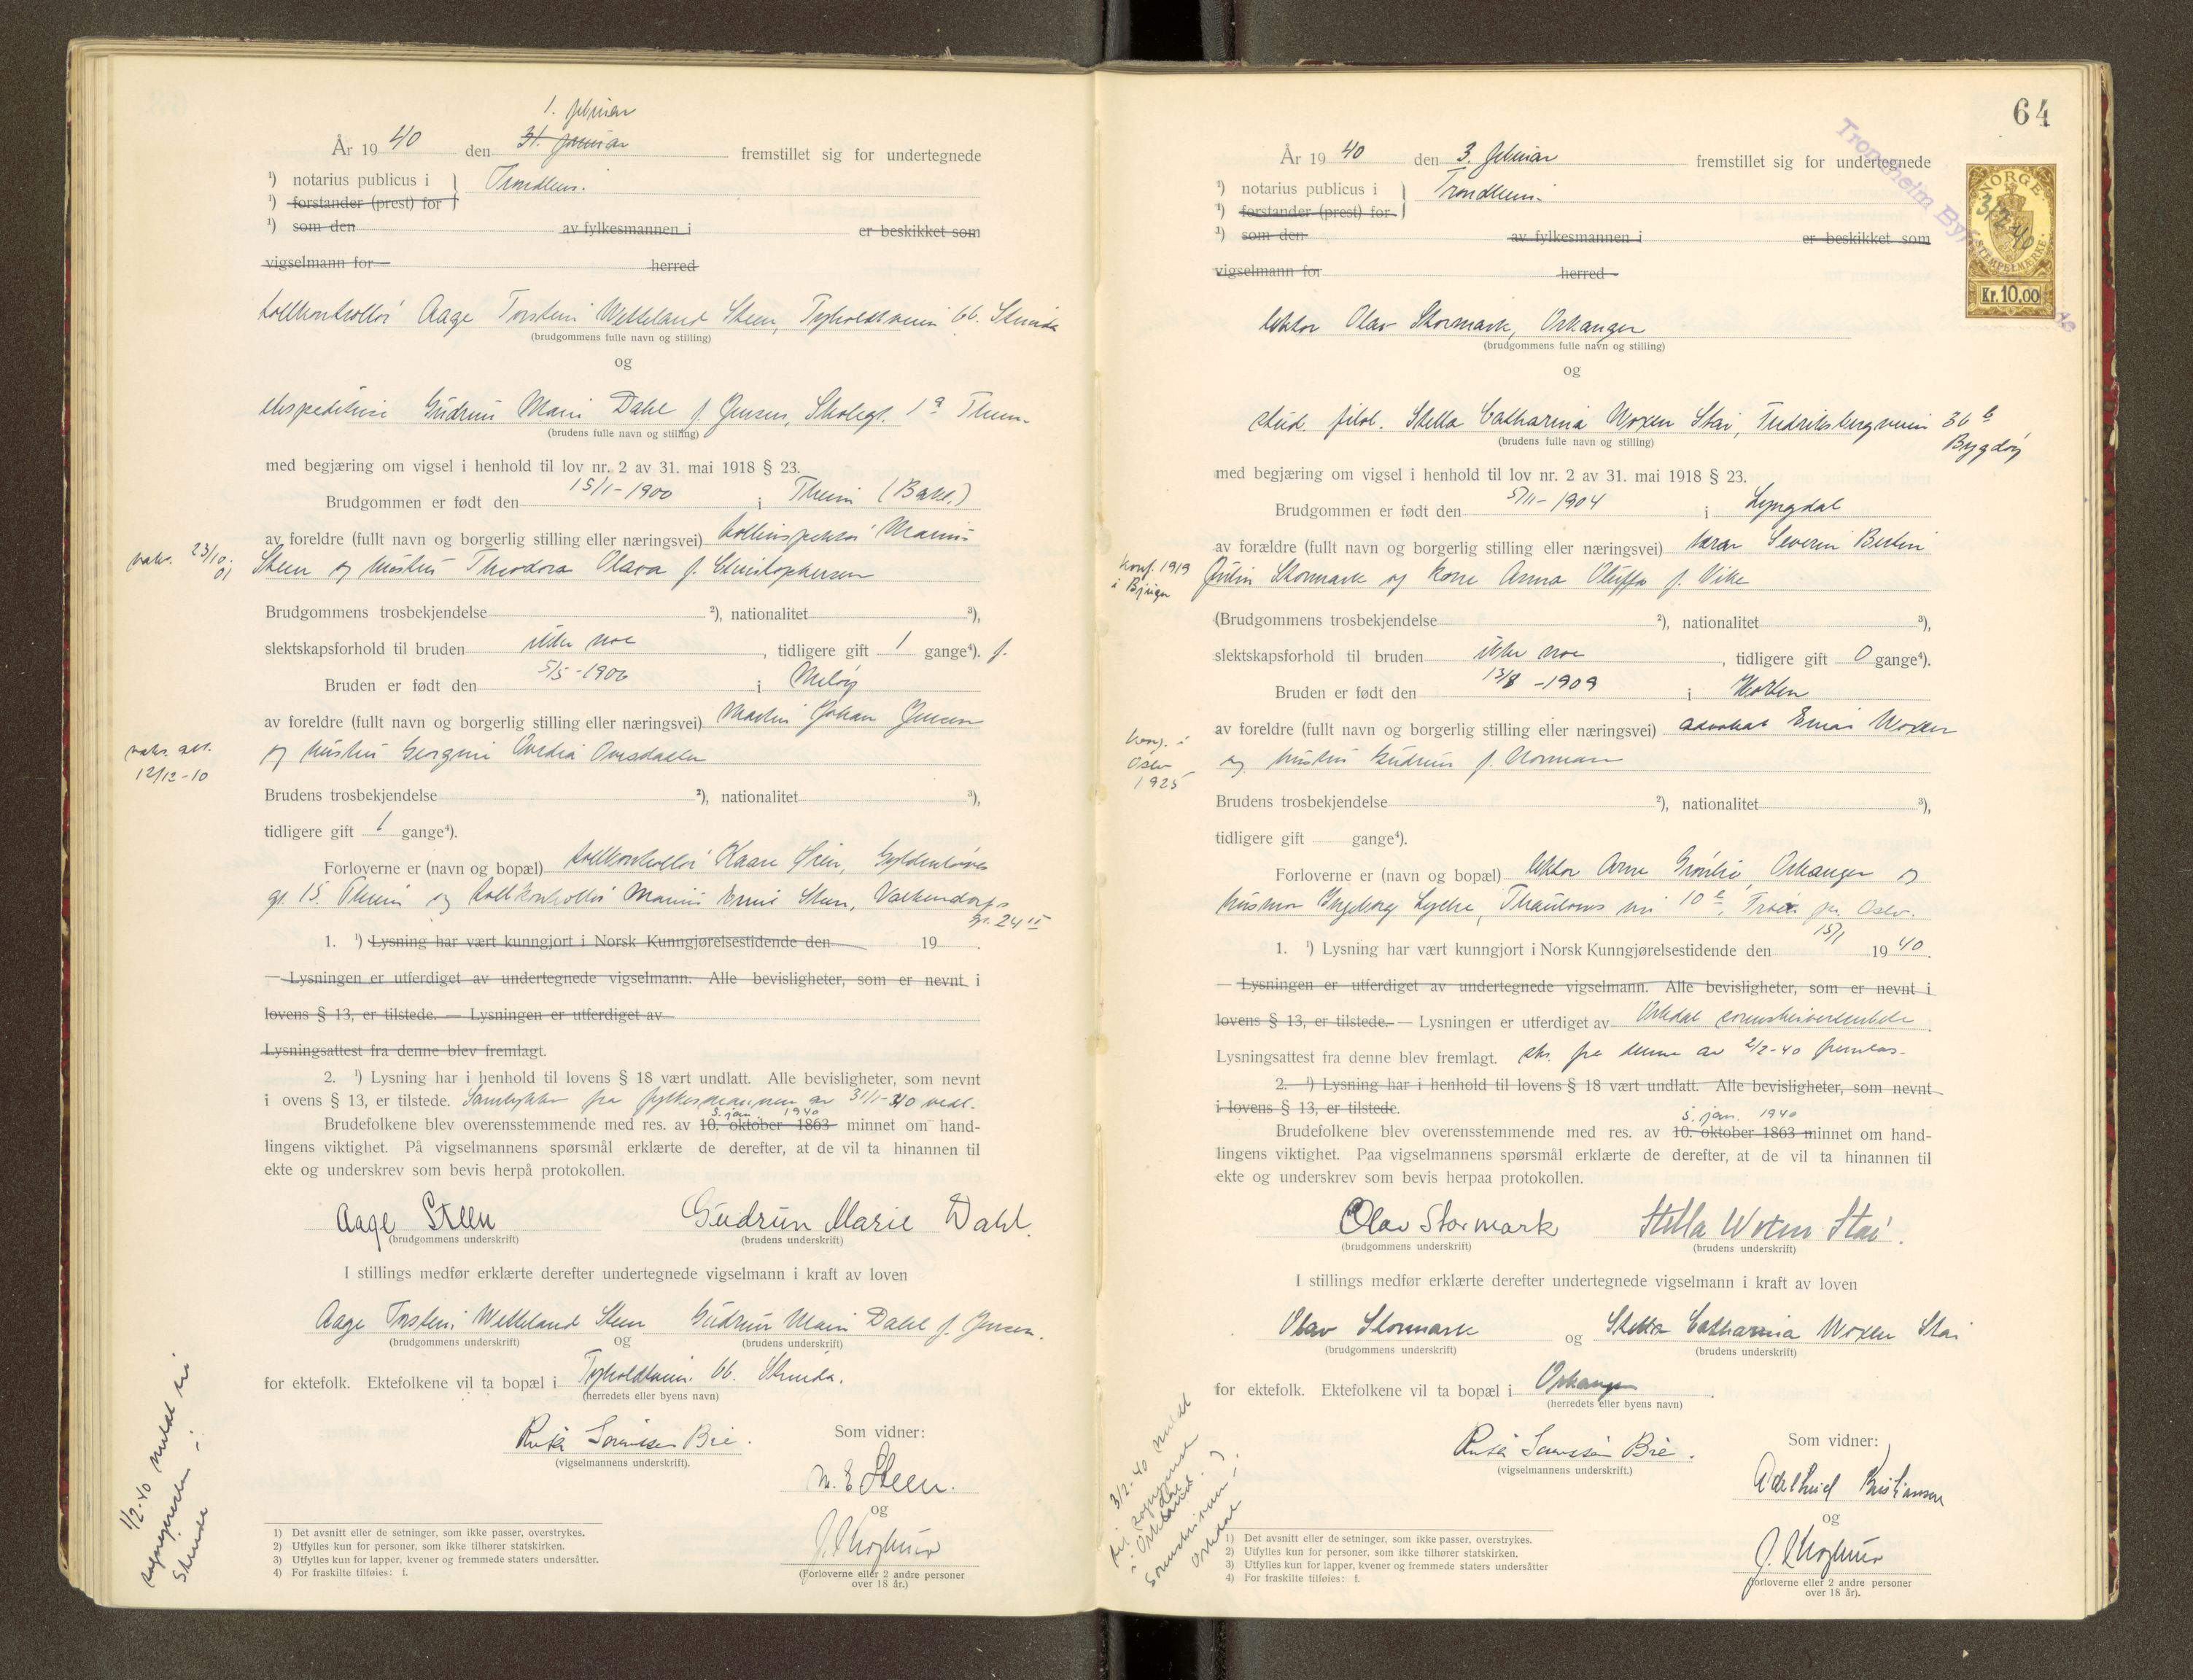 1. februar
År 1940 den 31. januar fremstillet sig for undertegnede
¹) notarius publicus i } Trondheim.
¹) forstander (prest) for
¹) som den av fylkesmannen i er beskikket som
vigselmann for herred
tollkontrollør Aage Torstein Welleland Steen, Tyholdtveien 66. Strinda
(brudgommens fulle navn og stilling)
og
ekspeditrise Gudrun Marie Dahl f. Jensen, Skolegt. 1ª Theim.
(brudens fulle navn og stilling)
med begjæring om vigsel i henhold til lov nr. 2 av 31. mai 1918 § 23.
Brudgommen er født den 15/1-1900 i Theim (Bakl.)
av foreldre (fullt navn og borgerlig stilling eller næringsvei) tollinspektør Marius
vaks. 23/10-01
Steen og hustru Theodora Olava f. Christophersen
Brudgommens trosbekjendelse ²), nationalitet ³),
slektskapsforhold til bruden ikke noe, tidligere gift 1 gange⁴). f.
Bruden er født den 5/5-1906 i Meløy
av foreldre (fullt navn og borgerlig stilling eller næringsvei) Martin Johan Jensen
vaks. att. 12/12-10
og hustru Georgine Ovedia
Brudens trosbekjendelse ²), nationalitet ³),
tidligere gift 1 gange⁴).
Forloverne er (navn og bopæl) tollkontrollør Kaare Øien, Gyldenløves
gt. 15. Theim og tollkontrollør Marius Emil Steen, Valkendorfs
gt. 24
1. ¹) Lysning har vært kunngjort i Norsk Kunngjørelsestidende den 19 .
— Lysningen er utferdiget av undertegnede vigselmann. Alle bevisligheter, som er nevnt i
lovens § 13, er tilstede. — Lysningen er utferdiget av
Lysningsattest fra denne blev fremlagt.
2. ¹) Lysning har i henhold til lovens § 18 vært undlatt. Alle bevisligheter, som nevnt
i ovens § 13, er tilstede. Samtykke fra fylkesmannen av 31/1-40 vedl.
5. jan. 1940
Brudefolkene blev overensstemmende med res. av 10. oktober 1863 minnet om hand-
lingens viktighet. På vigselmannens spørsmål erklærte de derefter, at de vil ta hinannen til
ekte og underskrev som bevis herpå protokollen.
Aage Steen Gudrun Marie Dahl.
(brudgommens underskrift) (brudens underskrift)
I stillings medfør erklærte derefter undertegnede vigselmann i kraft av loven
Aage Torstein Welleland Steen Gudrun Marie Dahl f. Jensen.
(brudgommens underskrift) og (brudens underskrift)
for ektefolk. Ektefolkene vil ta bopæl i Tyholdtveien 66. Strinda.
(herredets eller byens navn)
Sørensen Bie.
(vigselmannens underskrift).
Som vidner:
M. E. Steen.
og
(Forloverne eller 2 andre personer
over 18 år.)
1/2-40 meldt til
sognepresten i
Strinda
1) Det avsnitt eller de setninger, som ikke passer, overstrykes.
2) Utfylles kun for personer, som ikke tilhører statskirken.
3) Utfylles kun for lapper, kvener og fremmede staters undersåtter.
4) For fraskilte tilføies: f.
64
Trondheim By
NORGE
STEMPELMERKE
Kr. 10.00
3/2-40
År 1940 den 3. februar fremstillet sig for undertegnede
¹) notarius publicus i } Trondheim.
¹) forstander (prest) for
¹) som den av fylkesmannen i er beskikket som
vigselmann for herred
lektor Olav Stormark, Orkanger
(brudgommens fulle navn og stilling)
og
stud. filol. Stella Catharina Woxen Stai, Fredriksborgveien 36 b
Bygdøy
(brudens fulle navn og stilling)
med begjæring om vigsel i henhold til lov nr. 2 av 31. mai 1918 § 23.
Brudgommen er født den 5/11-1904 i Lyngdal
av forældre (fullt navn og borgerlig stilling eller næringsvei) lærer Severin Bertin
konf. 1919 i Bjugn
Julin Stormark og kone Anna Oluffa f. Vike
(Brudgommens trosbekjendelse ²), nationalitet ³),
slektskapsforhold til bruden ikke noe, tidligere gift 0 gange⁴).
Bruden er født den 13/8-1909 i Horten
av foreldre (fullt navn og borgerlig stilling eller næringsvei) advokat Einar Woxen
konf. i Oslo 1925
og hustru Gudrun f. Norman
Brudens trosbekjendelse ²), nationalitet ³),
tidligere gift gange⁴).
Forloverne er (navn og bopæl) lektor Arne Grønlie, Orkanger og
husmor Ingeborg Lycke, Thaulows vei 10 b, pr. Oslo.
1. ¹) Lysning har vært kunngjort i Norsk Kunngjørelsestidende den 15/1 1940.
— Lysningen er utferdiget av undertegnede vigselmann. Alle bevisligheter, som er nevnt i
lovens § 13, er tilstede. — Lysningen er utferdiget av Orkdal sorenskriverembede.
Lysningsattest fra denne blev fremlagt. skr. fra denne av 2/2-40 fremlas.
2. ¹) Lysning har i henhold til lovens § 18 vært undlatt. Alle bevisligheter, som nevnt
i lovens § 13, er tilstede.
5. jan. 1940
Brudefolkene blev overensstemmende med res. av 10. oktober 1863 minnet om hand-
lingens viktighet. Paa vigselmannens spørsmål erklærte de derefter, at de vil ta hinannen til
ekte og underskrev som bevis herpaa protokollen.
Olav Stormark Stella Woxen Stai.
(brudgommens underskrift) (brudens underskrift)
I stillings medfør erklærte derefter undertegnede vigselmann i kraft av loven
Olav Stormark og Stella Catharina Woxen Stai
(brudgommens underskrift) (brudens underskrift)
for ektefolk. Ektefolkene vil ta bopæl i Orkanger.
(herredets eller byens navn)
Sørensen Bie.
(vigselmannens underskrift.)
Som vidner:
Adelheid Kristiansen
og
(Forloverne eller 2 andre personer
over 18 år).
3/2-40 meldt
til sognepresten
i Orkdal
Sorenskriveren i
Orkdal
1) Det avsnitt eller de setninger, som ikke passer, overstrykes.
2) Utfylles kun for personer, som ikke tilhører statskirken.
3) Utfylles kun for lapper, kvener og fremmede staters undersåtter
4) For fraskilte tilføies: f.